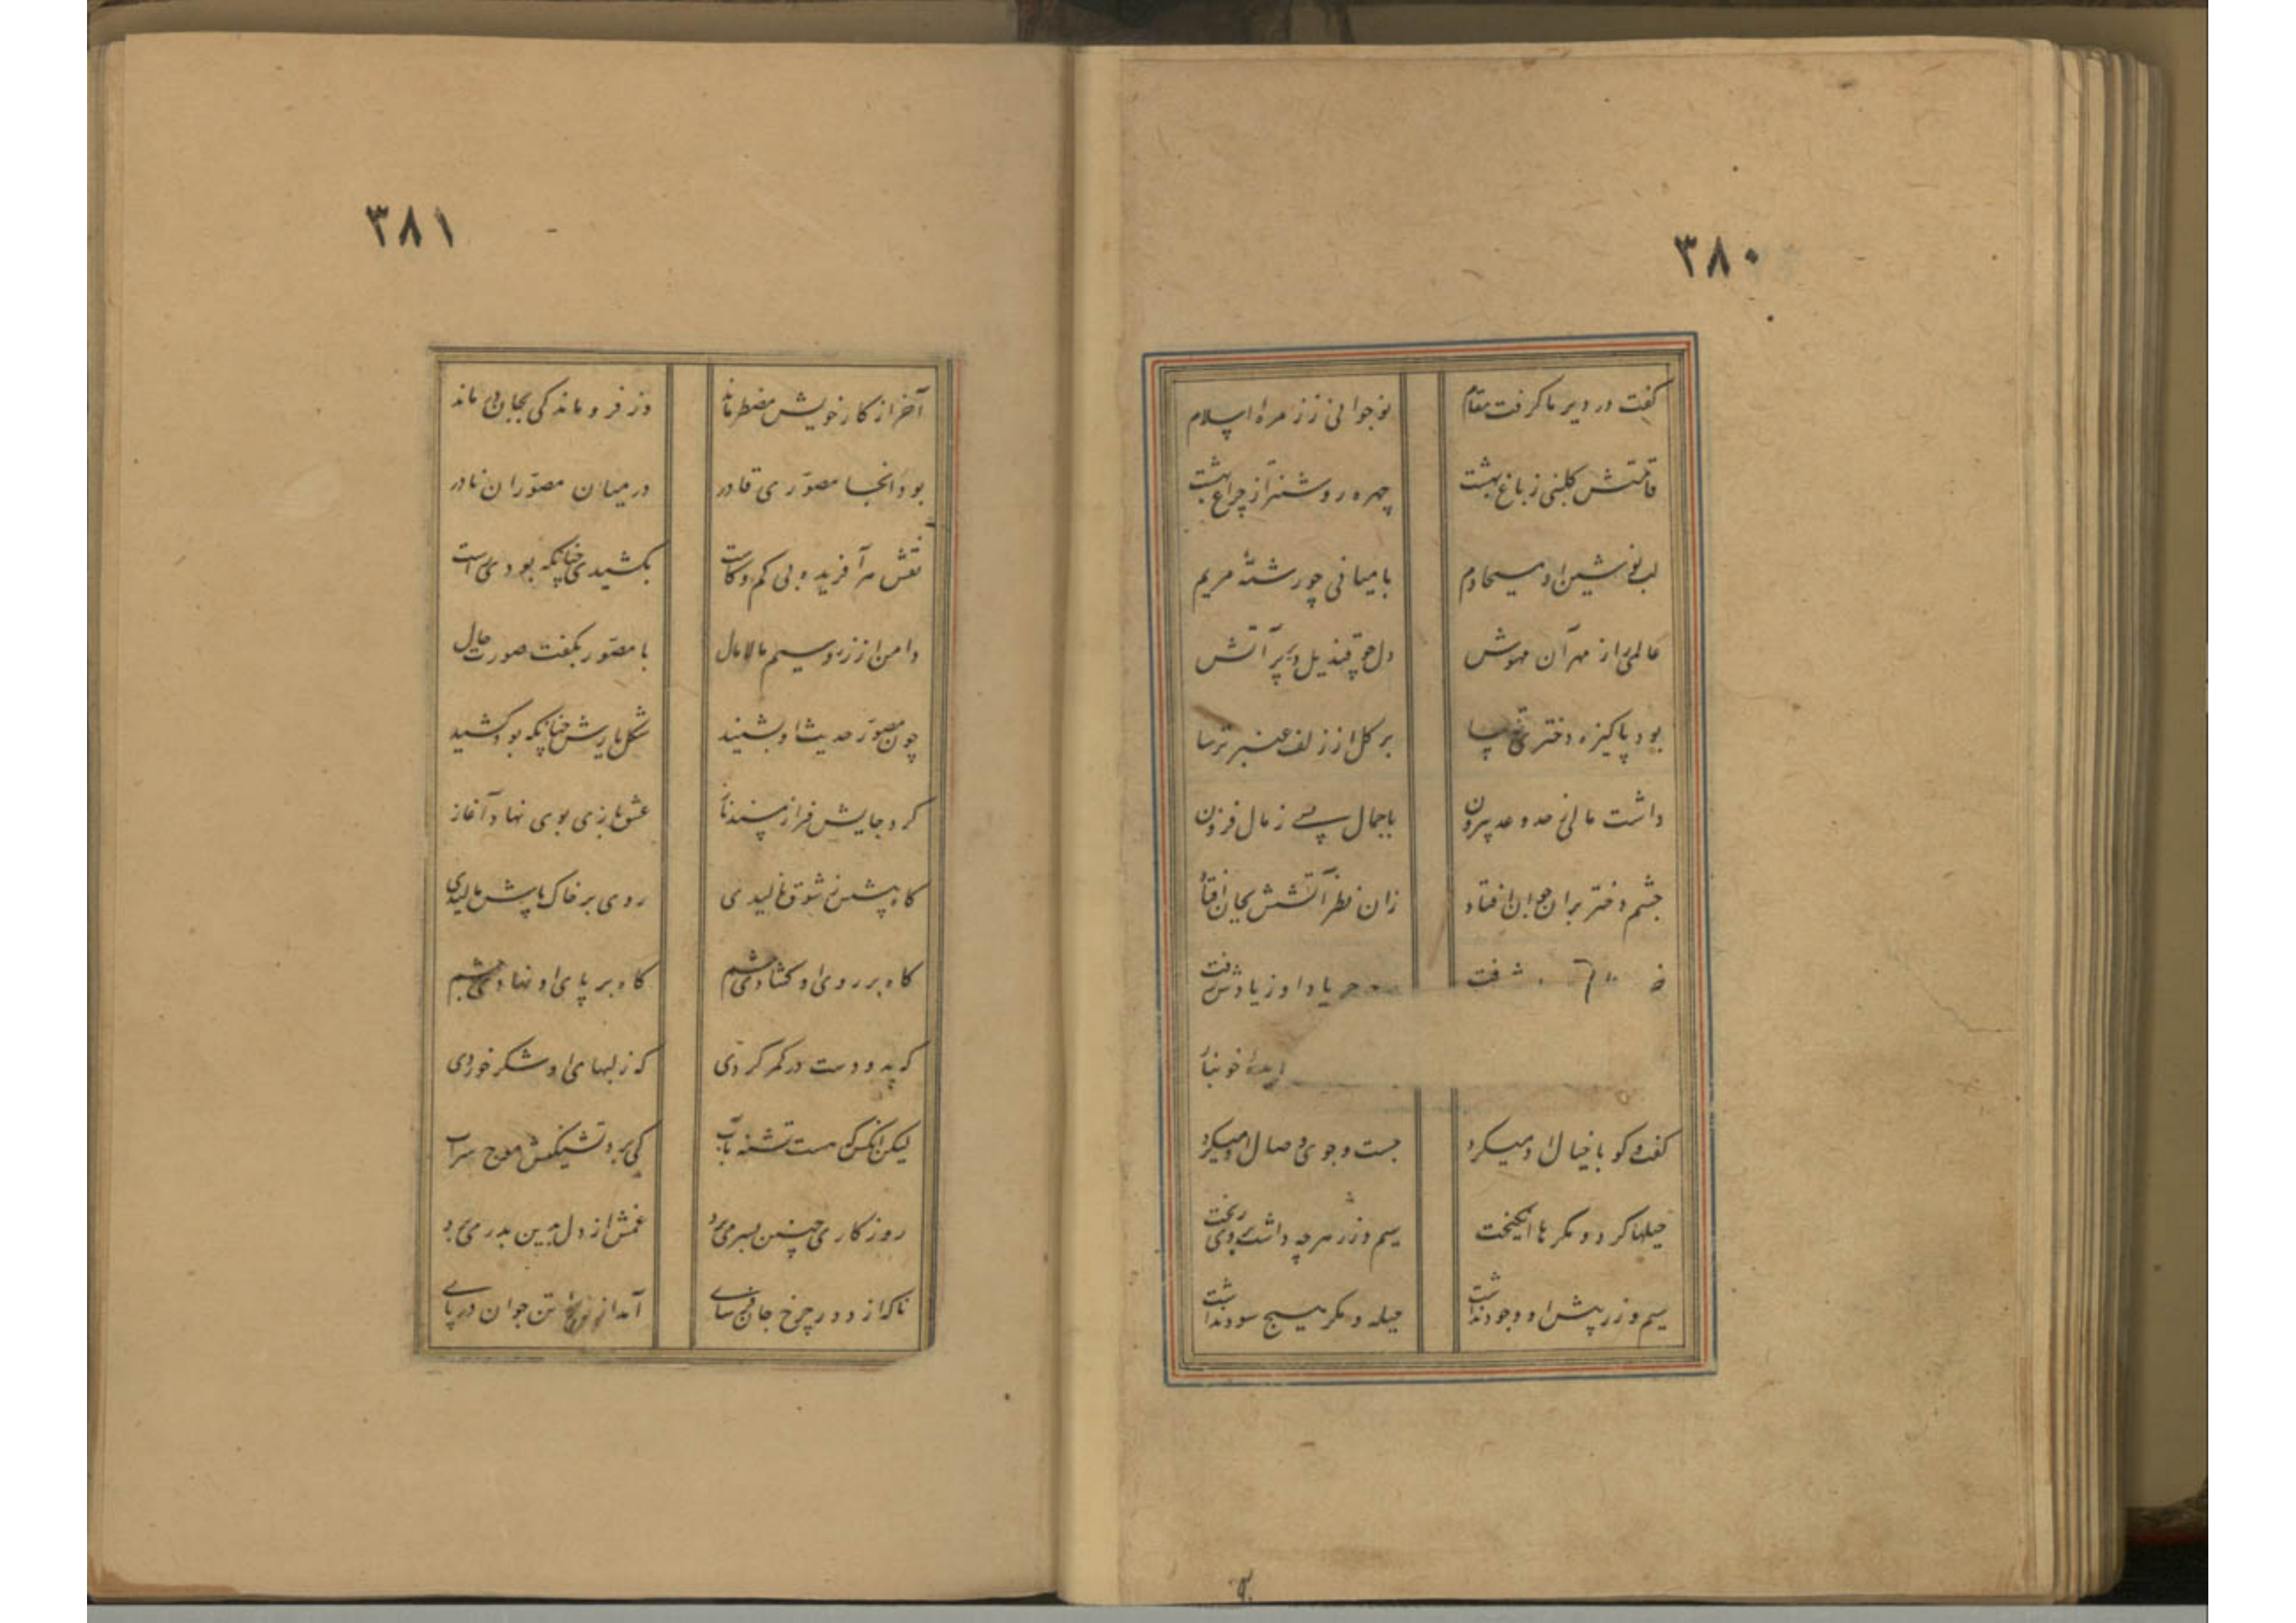 ۳۸۰
گفت در دیر ما گرفت مقام نوجوانی ز زمره اسلام
قامتش گلبنی ز باغ بهشت چهره روشنتر از چراغ بهشت
لب نوشین او مسیحا دم با میانی چو رشتهٔ مریم
عالمی را ز مهر آن مهوش دل چو قندیل دیر پر آتش
بود پاکیزه دختری ترسا بر گل از زلف عنبر ترسا
داشت مالی ز حد و عد بیرون با جمال بسی ز مال فزون
چشم دختر بران جوان افتاد زان نظر آتشش بجان افتاد
یاد او ز یادش رفت
دیدهٔ خونبار
گفت و گو با خیال او میکرد جست و جوی وصال او میکرد
حیلها کرد و مکرها انگیخت سیم و زر هرچه داشت بروی ریخت
سیم و زر پیش او وجود نداشت حیله و مکر هیچ سود نداشت
۳۸۱
آخر از کار خویش مضطر ماند وز فروماندگی بجان در ماند
بود انجا مصوّری قادر در میان مصوّران نادر
نقش هر آفریده بی کم و کاست بکشیدی چنانکه بودی راست
دامن از زر و سیم مالامال با مصوّر بگفت صورت حال
چون مصوّر حدیث او بشنید شکل یارش چنانکه بود کشید
کرد جایش فراز مسند ناز عشقبازی بوی نهاد آغاز
گاه پیشش ز شوق نالیدی روی بر خاک پاش مالیدی
گاه بر روی او گشادی چشم گاه بر پای او نهادی چشم
گه بدو دست در کمر کردی گه ز لبهای او شکر خوردی
لیکن آنکس که هست تشنه بآب کی برد تشنگیش موج سراب
روزگاری چنین بسر می برد غمش از دل بدین بدر می برد
ناگه از دور چرخ جان فرسای آمد از تن جوان در پای